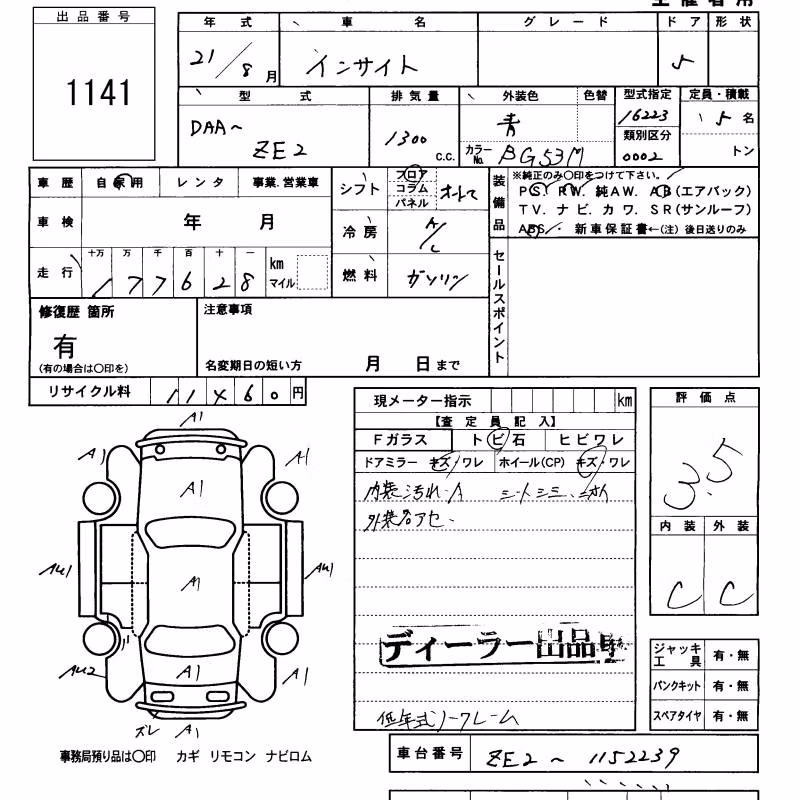 主催者用
出品番号
1141
年式 車名 グレード ドア 形状
21/8月 インサイト 5
型式 排気量 外装色 色替 型式指定 定員・積載
DAA~ ZE2 1300 c.c. 青 16223 5名
類別区分
カラーNo. BG53M 0002 トン
車歴 自家用 レンタ 事業.営業車
シフト フロア コラム パネル オートマ
装備品
※純正のみ〇印をつけて下さい。
PS. PW. 純AW. AB(エアバック)
TV. ナビ. カワ. SR(サンルーフ)
ABS. 新車保証書←(注)後日送りのみ
車検 年 月
冷房 A/C
走行 十万 万 千 百 十 一
177628 km マイル
燃料 ガソリン
セールスポイント
修復歴 箇所
有
(有の場合は〇印を)
注意事項
名変期日の短い方 月 日まで
リサイクル料 11460円
現メーター指示 km
【査定員記入】
Fガラス トビ石 ヒビワレ
ドアミラー キズ・ワレ ホイール(CP) キズ・ワレ
内装汚れ・A シートシミ、
外装色アセ.
ディーラー出品車
低年式ノークレーム
評価点
3.5
内装 外装
C C
ジャッキ工具 有・無
パンクキット 有・無
スペアタイヤ 有・無
A1
A1 A1
A1
AU1 A1 AU1
AU2 A1 A1
ズレ A1
事務局預り品は〇印 カギ リモコン ナビロム
車台番号 ZE2~1152239